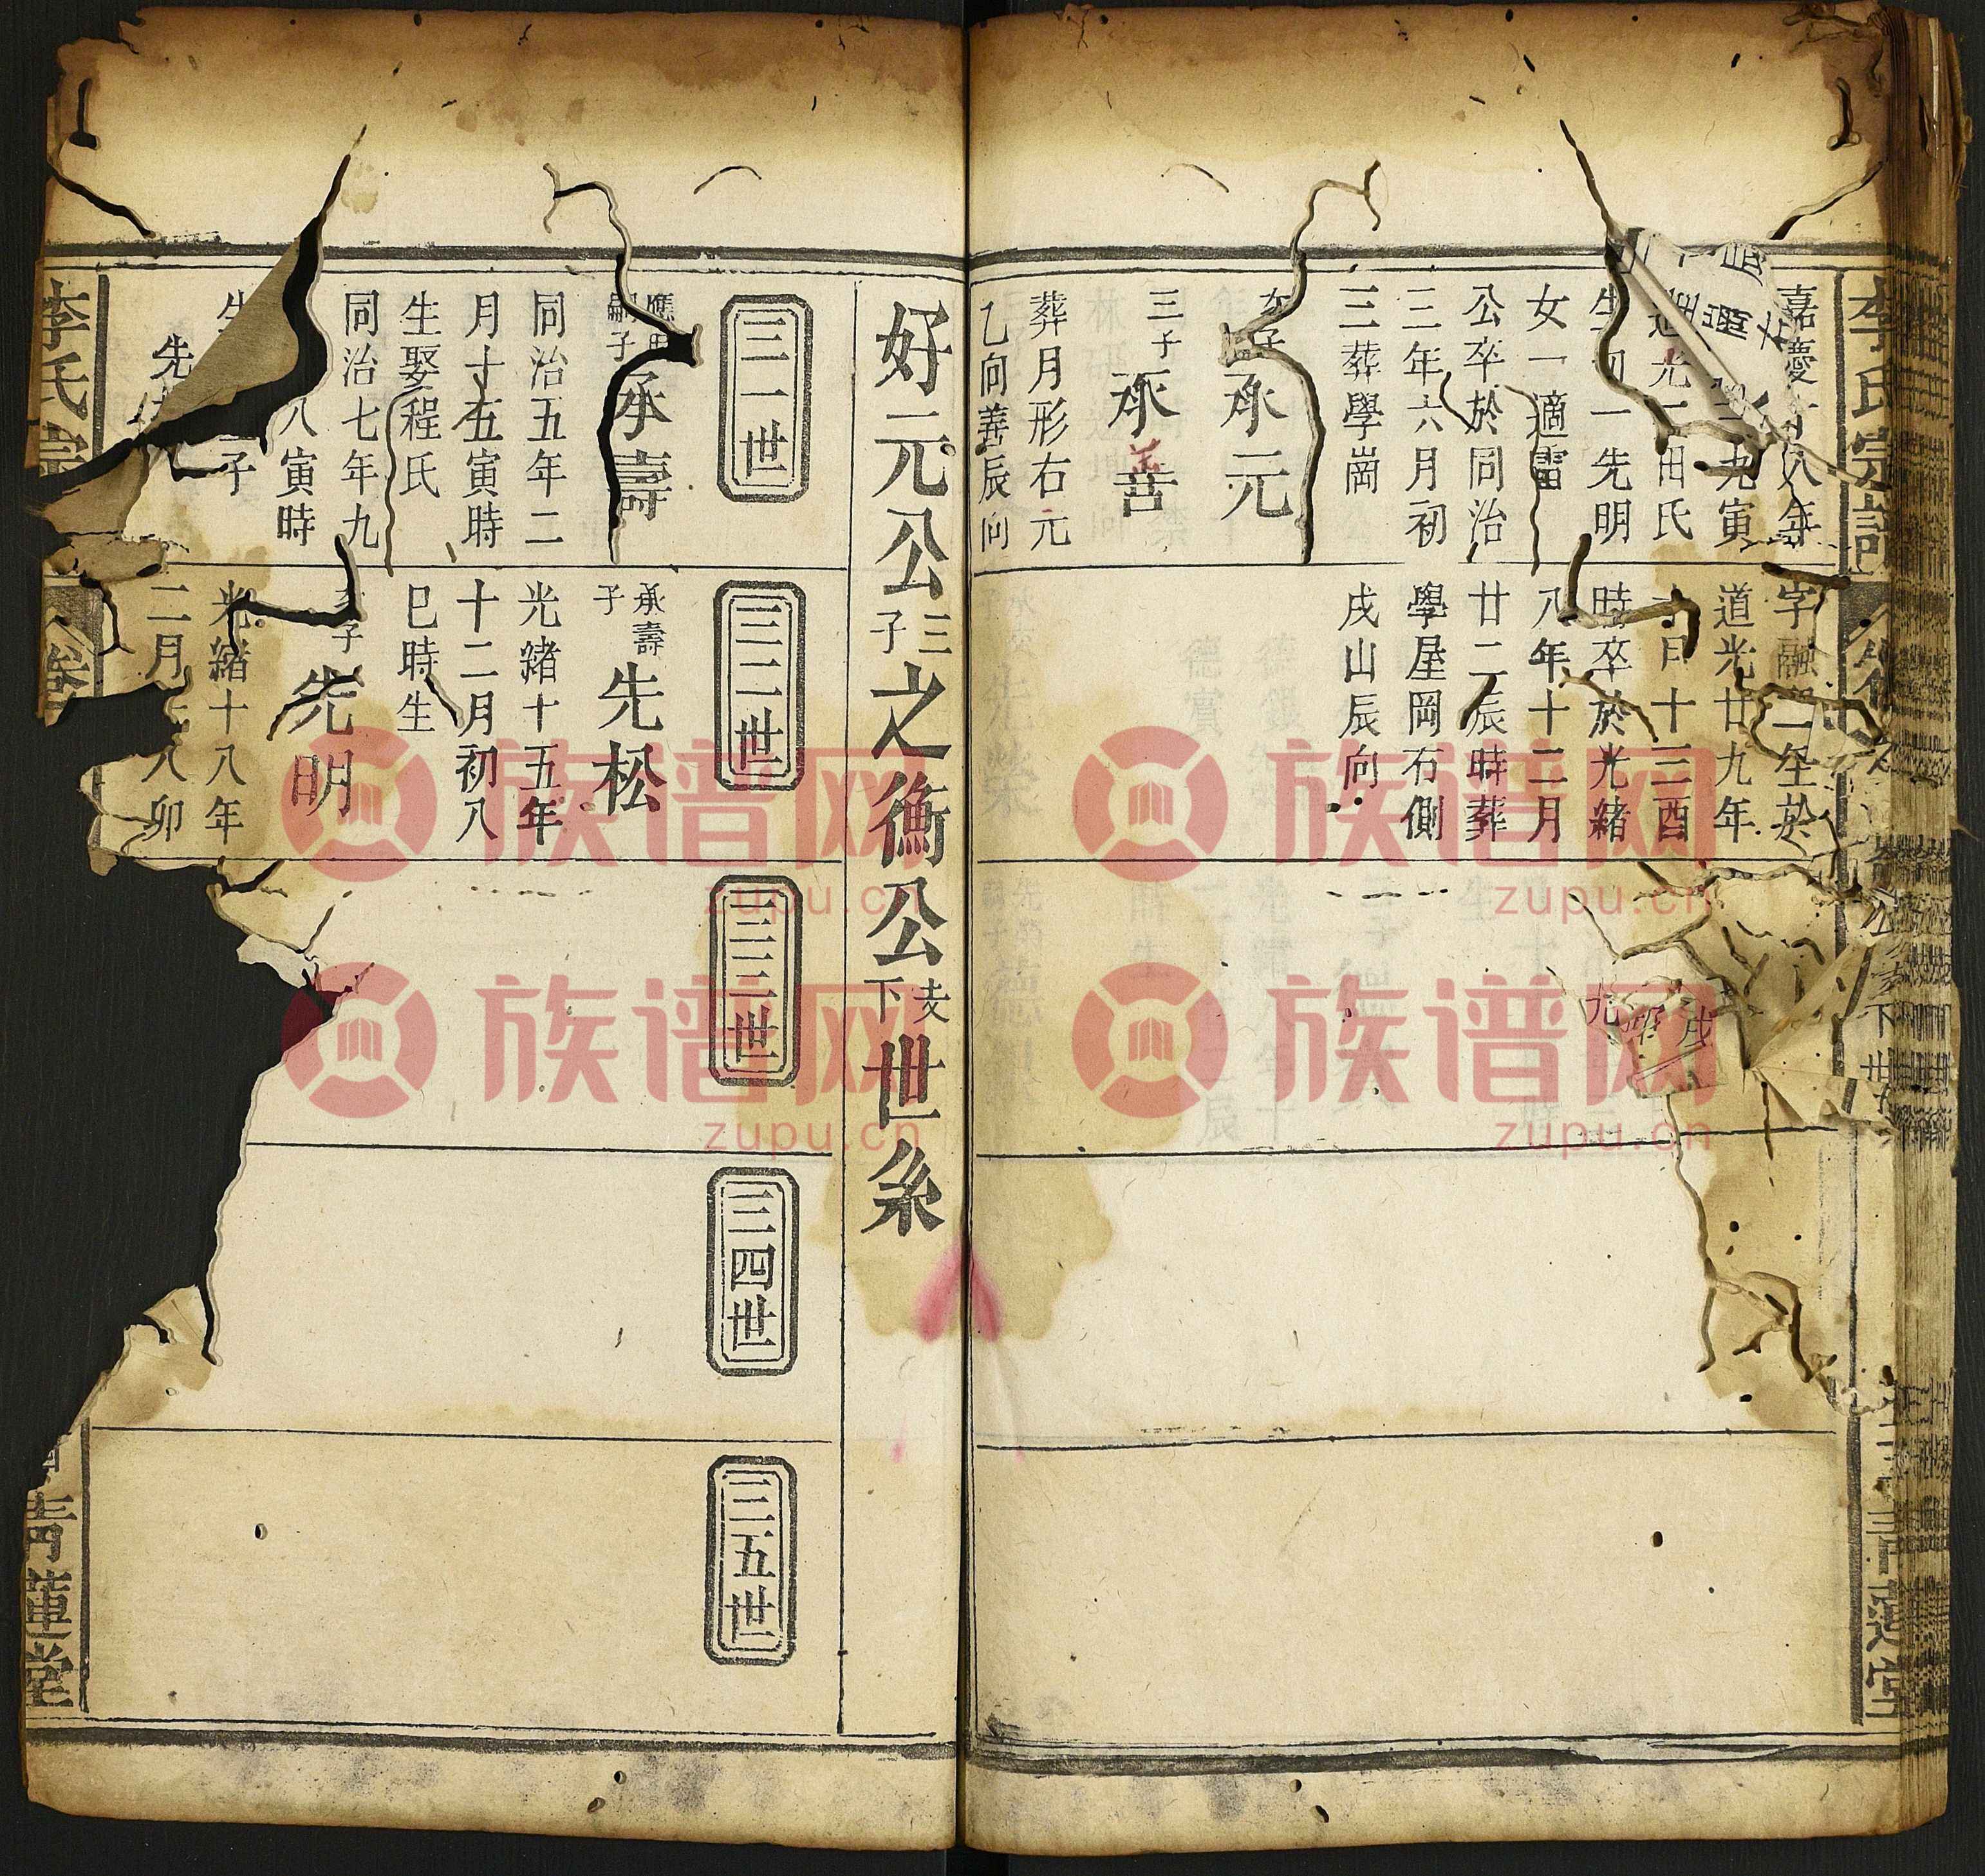 李氏宗譜
嘉慶十八年
九寅
道光二
田氏
生
一先明
女一適雷
公卒於同治
三年六月初
三葬學崗
次子
承元
三子
承善
葬月形右元
乙向善辰向
字融
生於
道光廿九年
月十三酉
時卒於光緒
八年十二月
廿二辰時葬
學屋岡右側
戌山辰向
九
戌
下世
青蓮堂
好元公三子之衡公支下世系
三一世
嗣子
承壽
同治五年二
月十五寅時
生娶程氏
同治七年九
八寅時
生
子
先
三二世
承壽子
先松
光緒十五年
十二月初八
巳時生
次子
先明
光緒十八年
二月
八卯
三三世
三四世
三五世
李氏宗
卷
青蓮堂
族谱网
zupu.cn
族谱网
zupu.cn
族谱网
zupu.cn
族谱网
zupu.cn